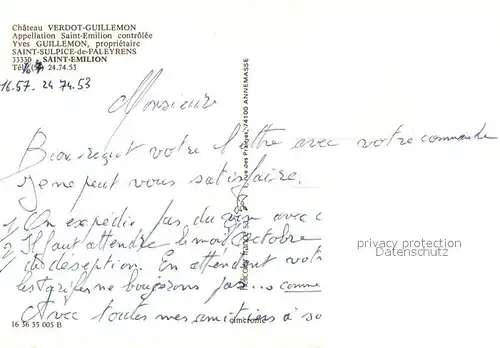 Château VERDOT-GUILLEMON
Appellation Saint-Emilion contrôlée
Yves GUILLEMON, propriétaire
SAINT-SULPICE-de-FALEYRENS
33330 SAINT-EMILION
Tél. 24.74.53
16.57. 24 74.53
Monsieur
Bien reçut votre lettre avec votre commande
je ne peut vous satisfaire.
1 On expédie pas du vin avec c
2 Il faut attendre le mois d'octobre
déception. En attendant votr
les grifes ne bougerons pas... comme
Avec toutes mes amitiés à so
16 36 35 005 B
74100 ANNEMASSE
cim
privacy protection
Datenschutz